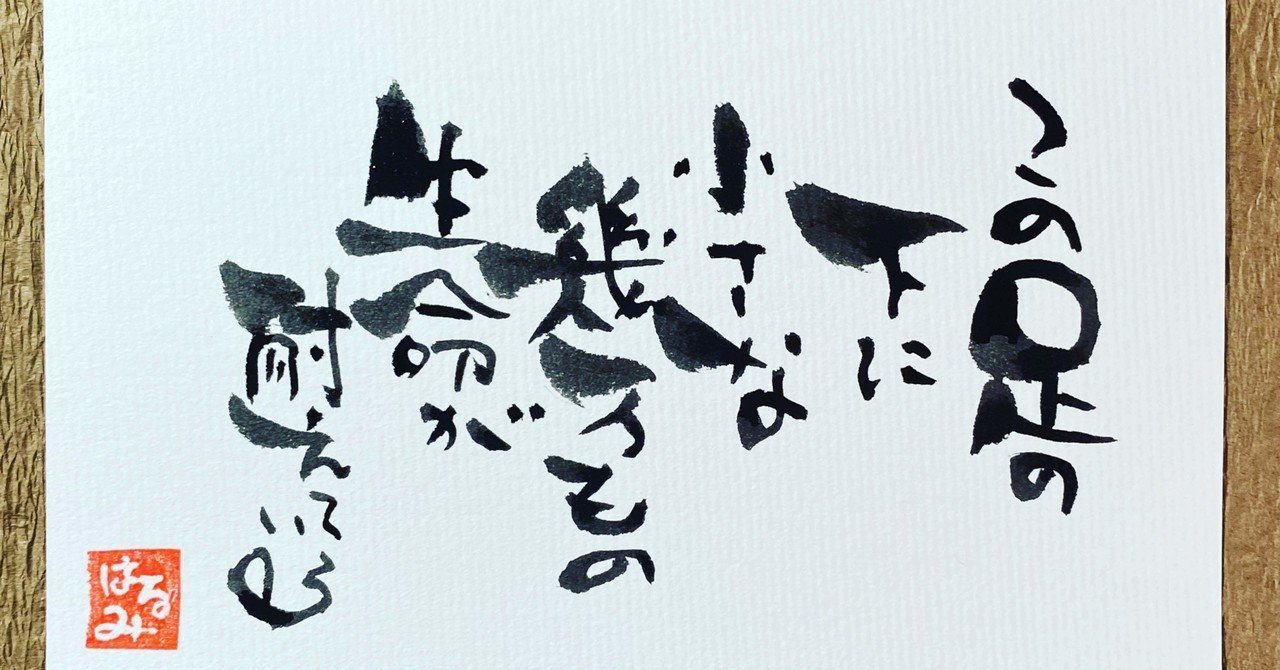 この足の
下に
小さな
幾万もの
生命が
耐えている
はるみ